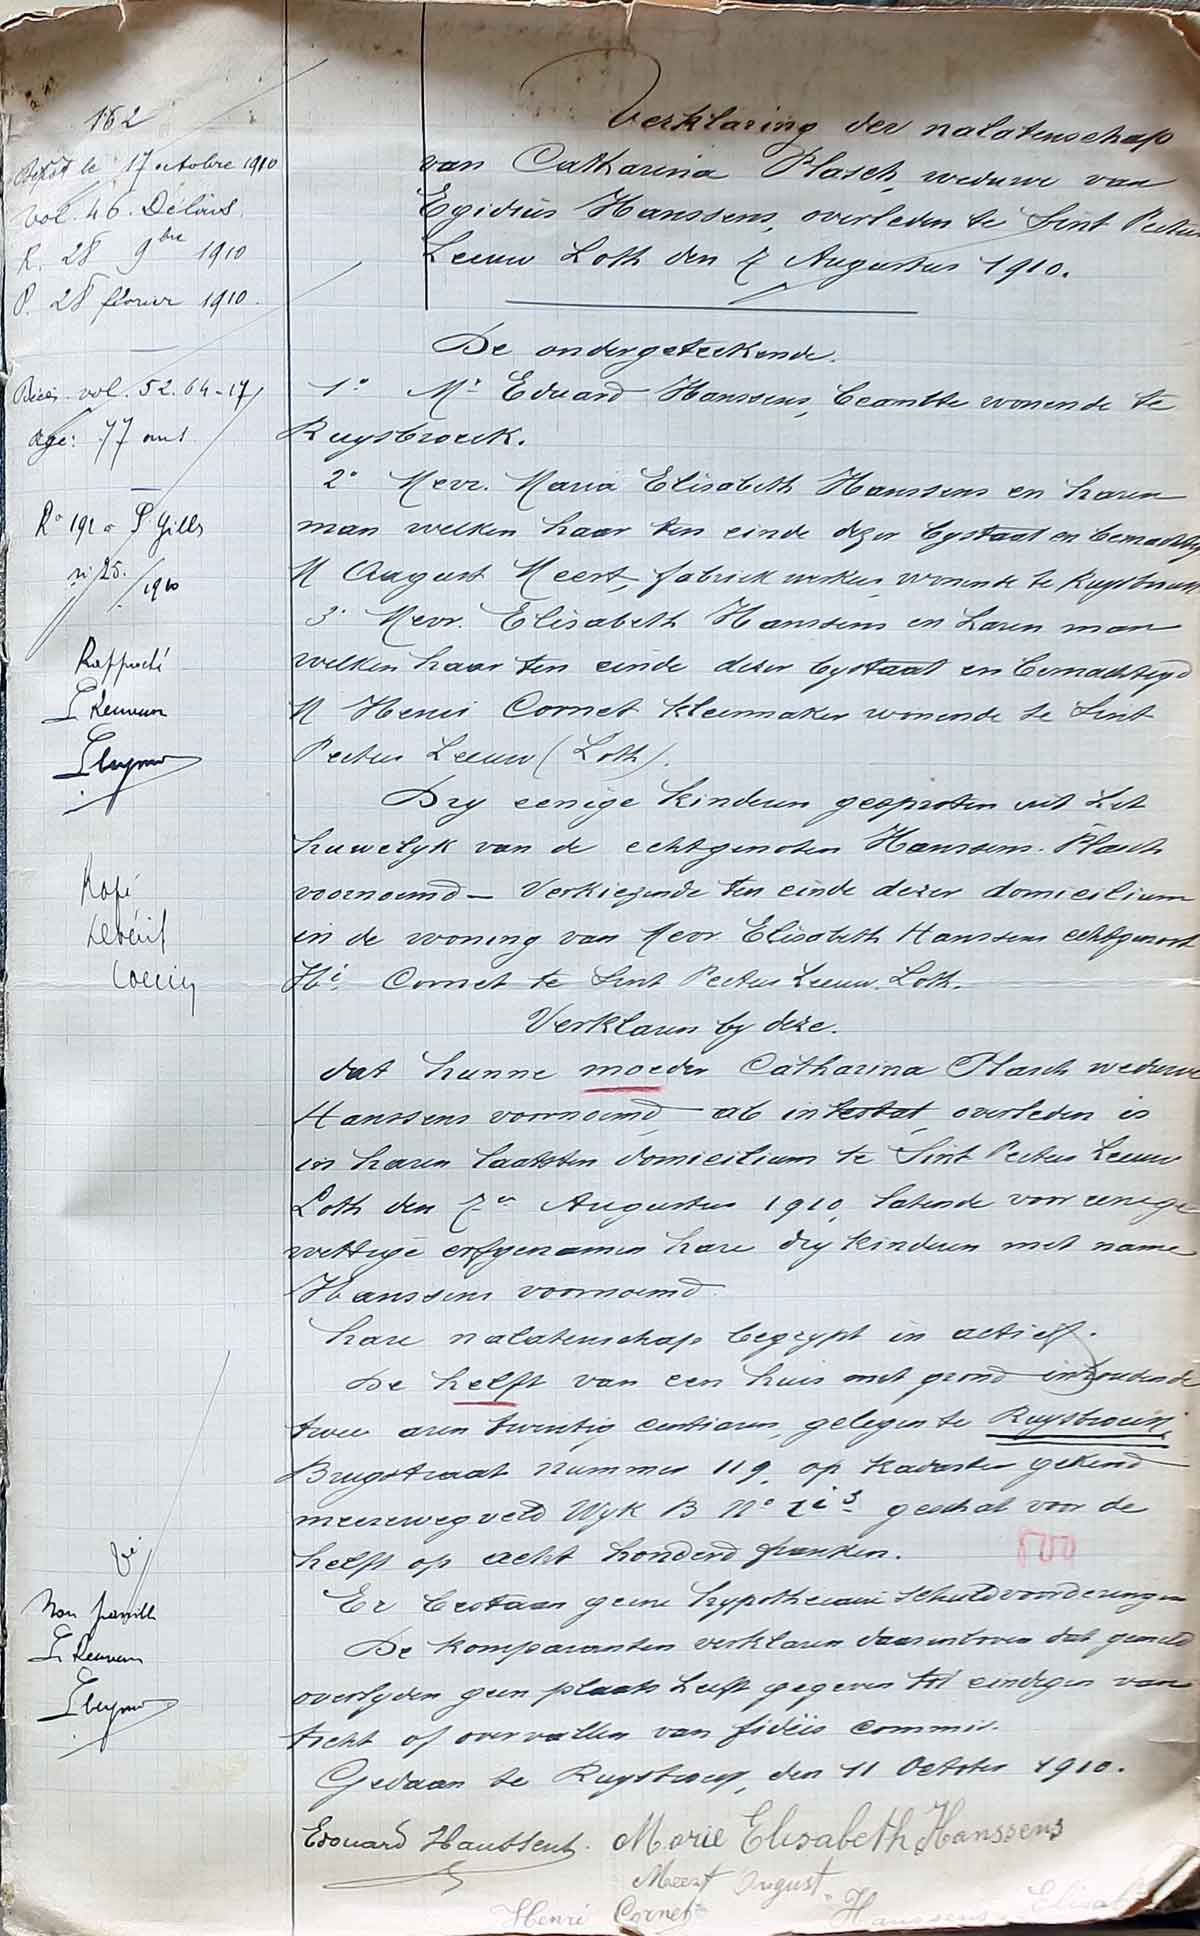 182
Dépôt le 17 octobre 1910
vol. 46. Délais.
R. 28 9bre 1910
P. 28 février 1910.
Décès vol. 52.64-17
age: 77 ans
Ro 191 a St Gilles
n: 25. / 1910
Verklaring der nalatenschap
van Catharina Plasch, weduwe van
Egidius Hanssens, overleden te Sint Peeters
Leeuw Loth den 7 Augustus 1910.
De ondergeteekende.
1° Mr Eduard Hanssens, beambte wonende te
Ruysbroeck.
2° Mevr. Maria Elisabeth Hanssens en haren
man welken haar ten einde dezer bystaat en bemachtigd
M August Meert, fabriekwerker, wonende te Ruysbroeck
3° Mevr. Elisabeth Hanssens en haren man
welken haar ten einde dezer bystaat en bemachtigd
M Henri Cornet kleermaker wonende te Sint
Peeters Leeuw (Loth).
Dry eenige kinderen gesproten uit het
huwelyk van de echtgenoten Hanssens-Plasch
voornoemd — Verkiezende ten einde dezer domicilium
in de woning van Mevr. Elisabeth Hanssens echtgenoot
Hi Cornet te Sint Peeters Leeuw. Loth.
Verklaren by deze.
dat hunne moeder Catharina Plasch weduwe
Hanssens voornoemd ab intestat overleden is
in haren laatsten domicilium te Sint Peeters Leeuw
Loth den 7en Augustus 1910, latende voor eenige
wettige erfgenamen hare dry kinderen met name
Hanssens voornoemd.
hare nalatenschap begrypt in actief.
De helft van een huis met grond inhoudende
twee aren twintig centiaren, gelegen te Ruysbroeck
Brugstraat nummer 119, op kadaster gekend
meereweg veld Wyk B No geschat voor de
helft op acht honderd franken. 800
Er bestaan geene hypothecaire schuldvorderingen
De komparanten verklaren daarenboven dat gemeld
overlyden geen plaats heeft gegeven tot eindigen van
tocht of overvallen van fideis commis.
Gedaan te Ruysbroeck, den 11 October 1910.
Non famille
Edouard Hanssens. Marie Elisabeth Hanssens
Meert August
Henri Cornet Hanssens Elisab